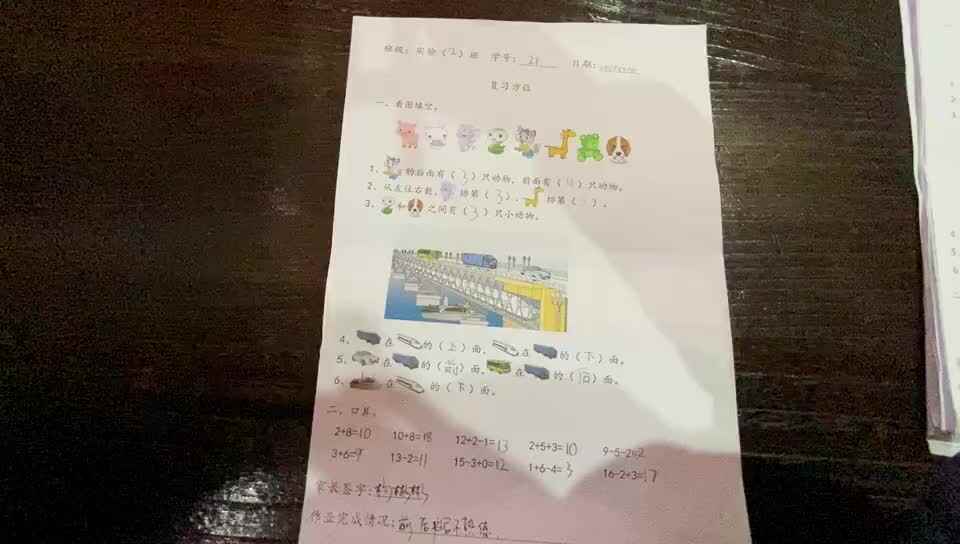 班级：实验（2）班 学号：21 日期：
复习方位
一、看图填空。
1、的后面有（3）只动物，前面有（4）只动物。
2、从左往右数，排第（3），排第（）。
3、和之间有（3）只小动物。
4、在的（上）面，在的（下）面。
5、在的（前）面，在的（后）面。
6、在的（下）面。
二、口算。
2+8=10 10+8=18 12+2-1=13 2+5+3=10 9-5-2=2
3+6=9 13-2=11 15-3+0=12 1+6-4=3 16-2+3=17
家长签字：
作业完成情况：前后